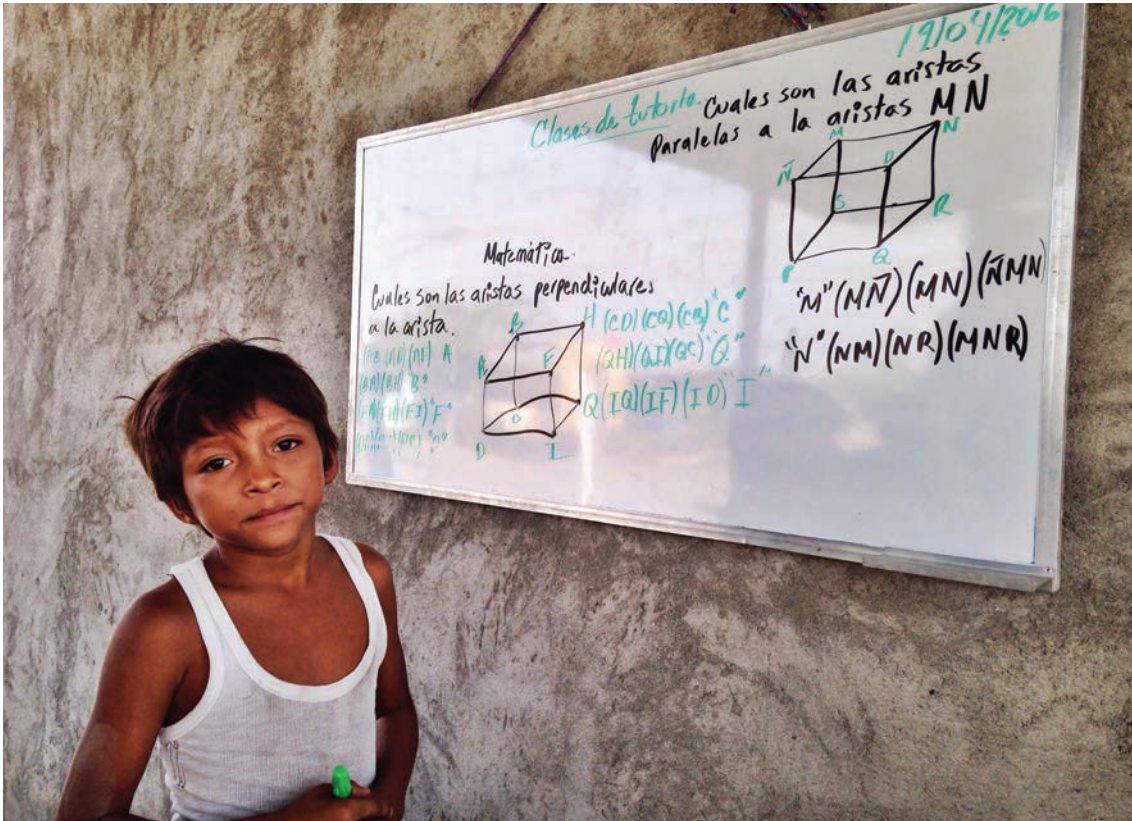 19/04/2016
Clases de tutoria. Cuales son las aristas
Paralelas a la aristas MN
M
N
Ñ
S
R
P
Q
"M" (MÑ) (MN) (ÑMN)
"N" (NM) (NR) (MNR)
Matemática.
Cuales son las aristas perpendiculares
a la arista.
H (CD) (CQ) (CB) "C"
(QH) (QI) (QC) "Q"
Q (IQ) (IF) (ID) "I"
A
(BA) (BH) "B"
(FA) (FH) (FI) "F"
D
I